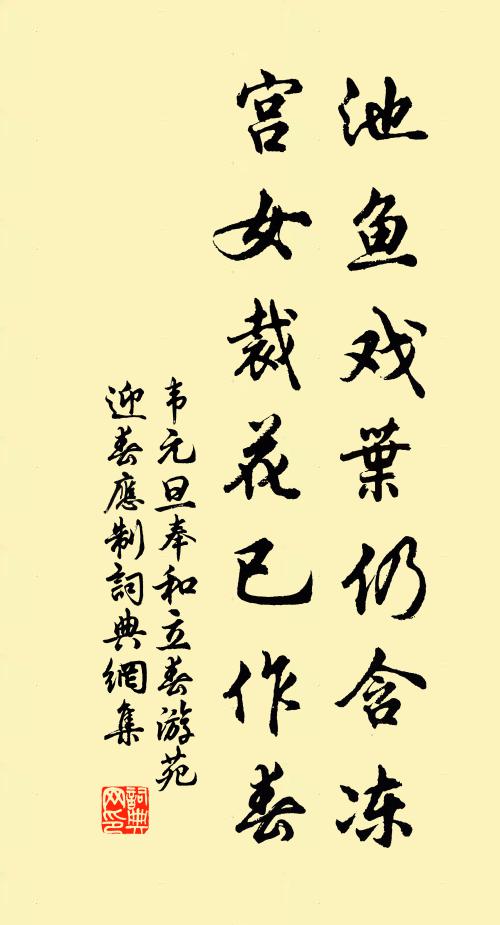 池鱼戏葉仍含冻
宫女裁花已作春
韦元旦奉和立春游苑
迎春應制詞典網集
詞典
网印